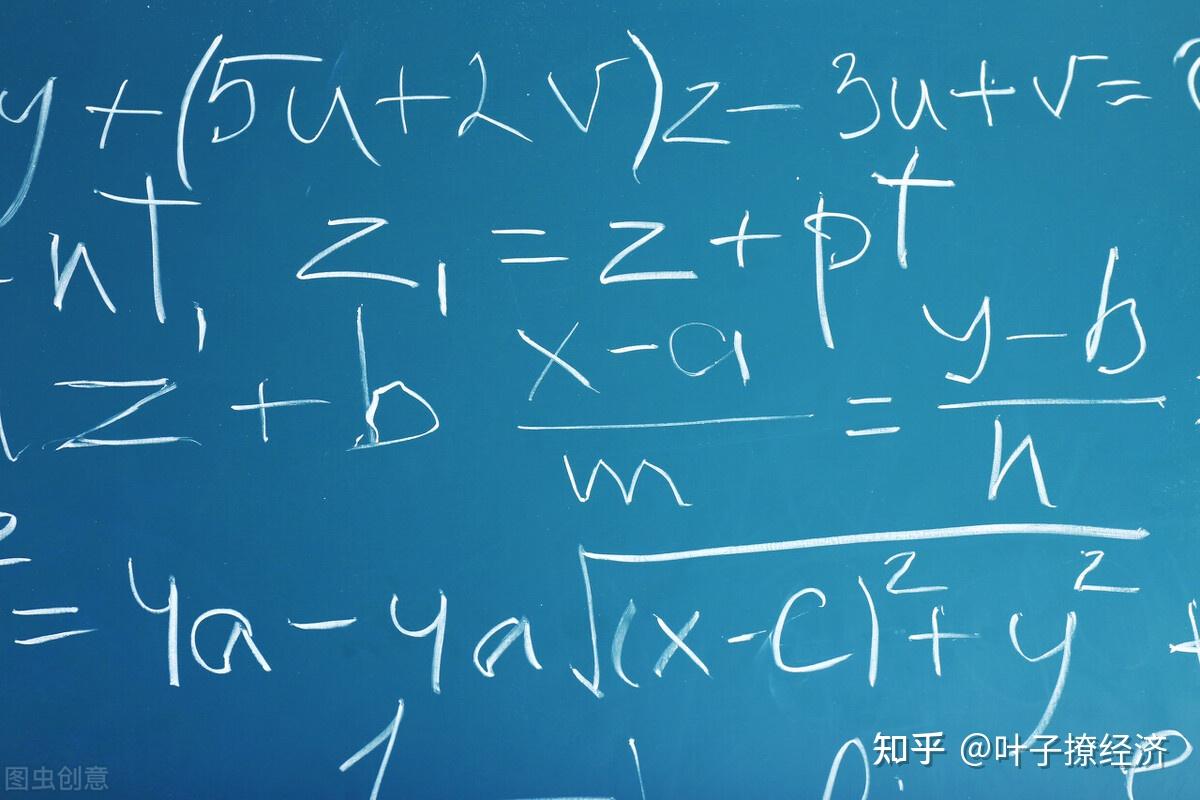 y + (5u + 2v)z - 3u + v =
nt, z₁ = z + pt
z + b (x - a)/m = (y - b)/n
= 4a - 4a√((x - c)² + y²
1
知乎 @叶子撩经济
图虫创意